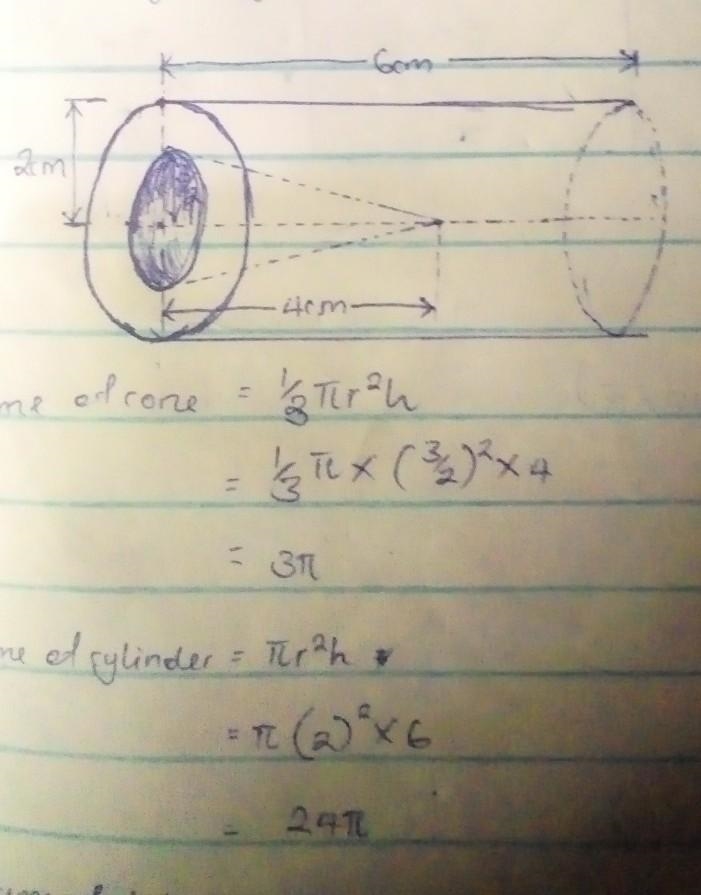 6cm
2cm
4cm
me of cone = 1/3 πr²h
= 1/3 π × (3/2)² × 4
= 3π
me of cylinder = πr²h
= π(2)² × 6
= 24π